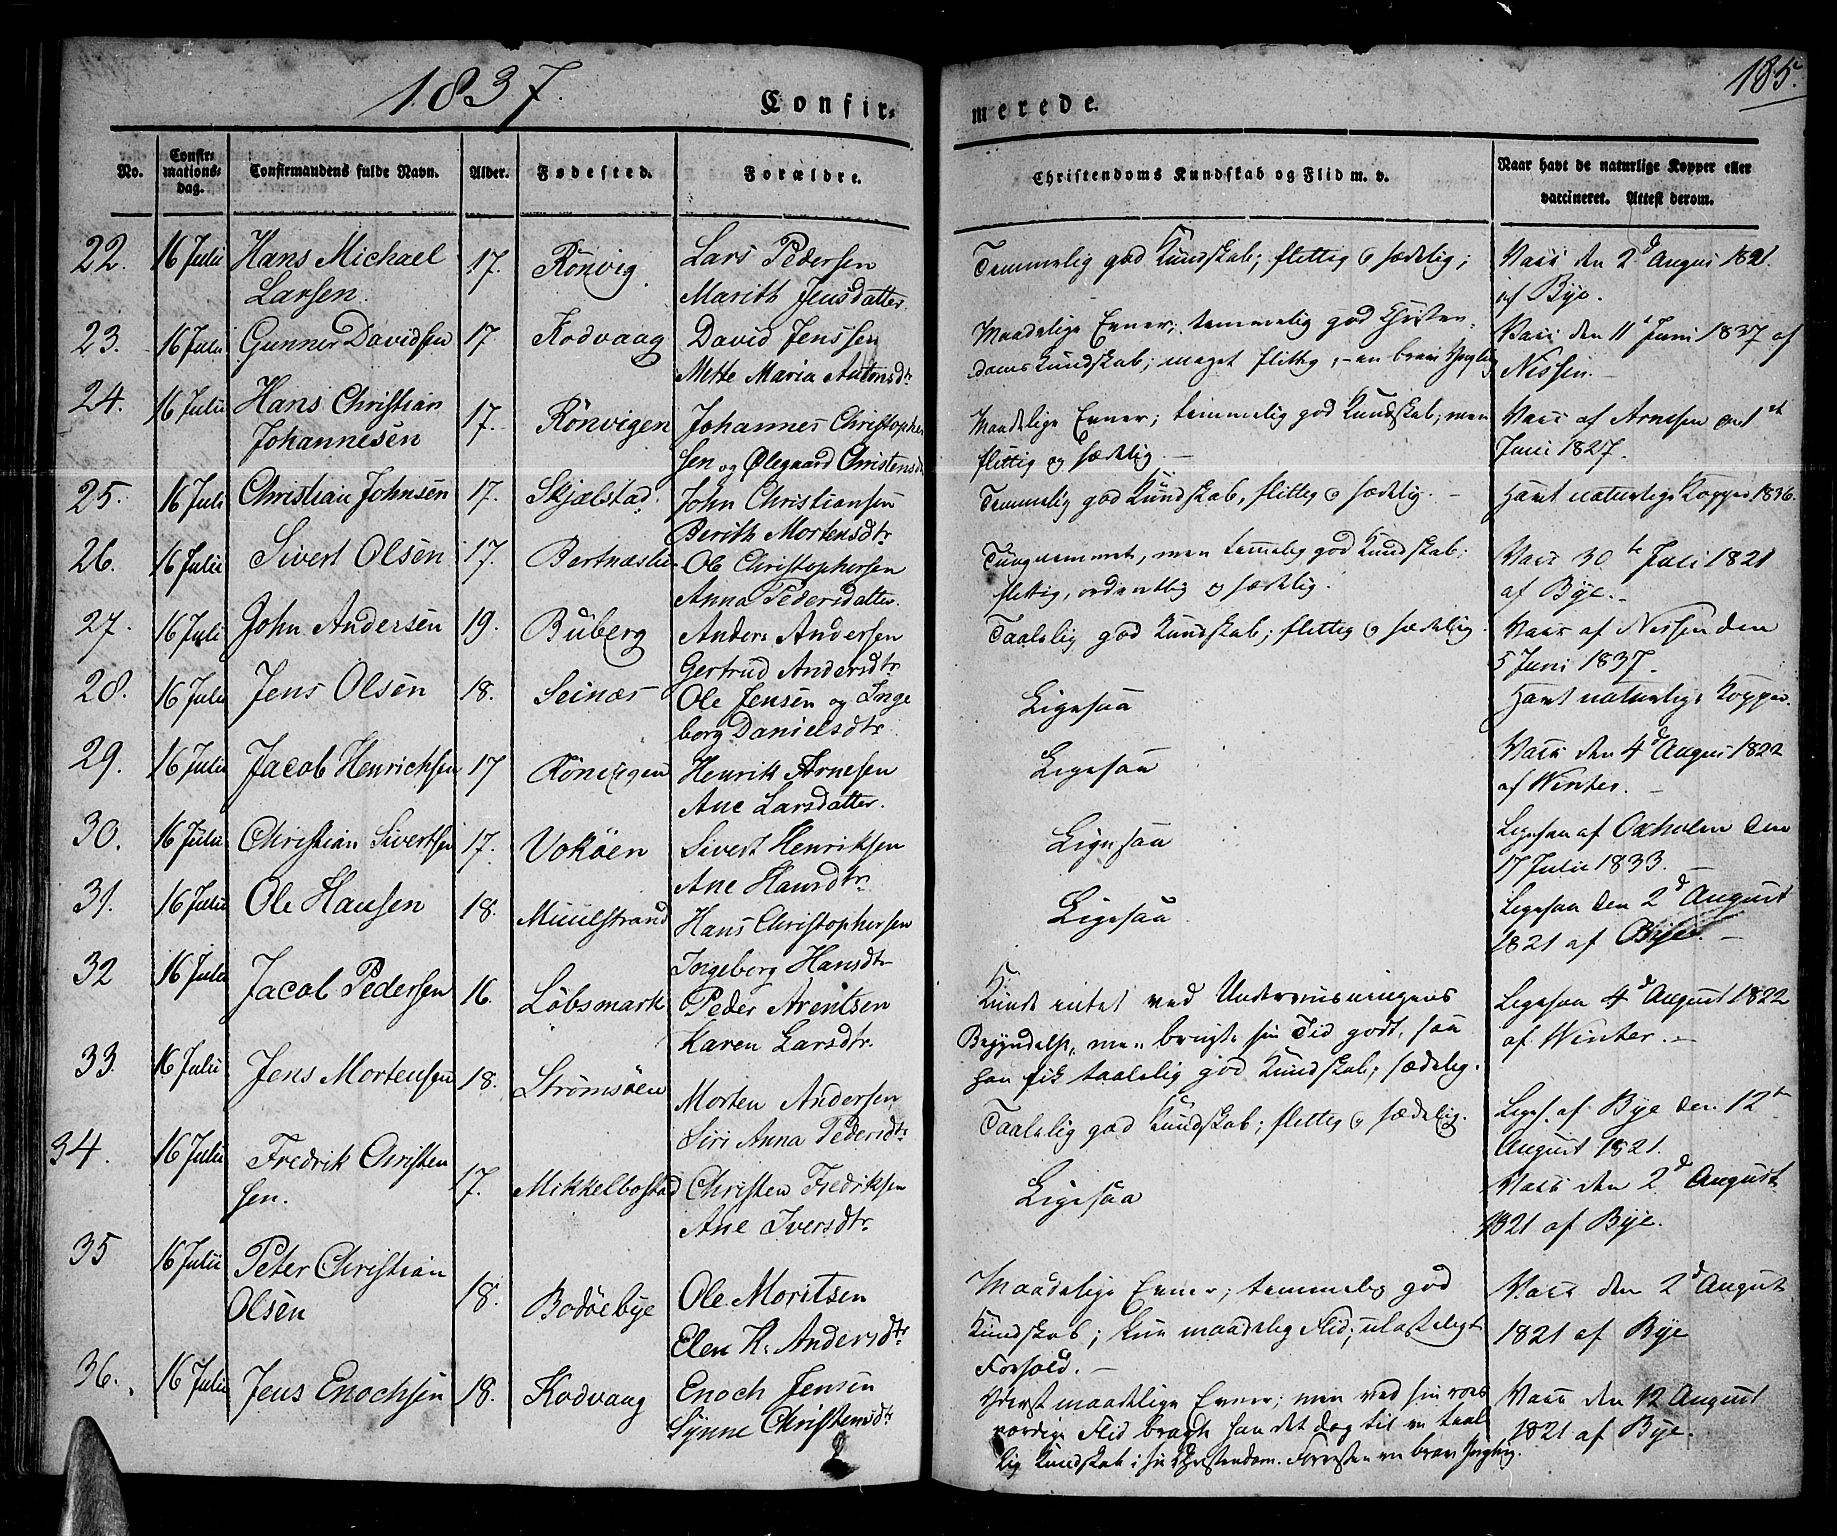 1837. Confir= merede. 185.
No. Confir=mations=dag. Confirmandens fulde Navn. Alder. Fødested. Forældre. Christendoms Kundskab og Flid m. v. Naar havt de naturlige Kopper eller vaccineret. Attest derom.
22. 16 Julii Hans Michael 17. Rönvig Lars Pedersen Temmelig god Kundskab; flittig og sædelig; Vacc den 2d Augus 1821.
Larsen. Marith Jensdatter af Bye.
23. 16 Julii Gunner Davidsen 17. Kodvaag David Jenssen Maadelige Evner; temmelig god Christen- Vacc den 11te Juni 1837 af
Mette Maria Antonsdtr doms Kundskab; meget flittig, - en brav Yngling Nissen.
24. 16 Julii Hans Christian 17. Rönvigen Johannes Christopher Maadelige Evner; temmelig god Kundskab; men Vacc af Arnesen den 1st
Johannesen sen og Ølegaard Christensd flittig og sædelig. - Juni 1827.
25. 16 Juli Christian Johnsen 17. Skjælstad John Christiansen Temmelig god Kundskab, flittig og sædelig. - Havt naturlige Kopper 1836.
Berith Mortensdtr
26. 16 Julii Sivert Olsen 17. Bertnæslie Ole Christophersen Tungnemmet, men temmelig god Kundskab; Vacc 30te Juli 1821
Anna Pedersdatter. flittig, ordentlig og sædelig. af Bye. -
27. 16 Juli John Andersen 19. Buberg Anders Andersen Taalelig god Kundskab; flittig og sædelig Vacc af Nissen den
Gertrud Andersdtr 5 Juni 1837.
28. 16 Julii Jens Olsen 18. Seinæs Ole Jensen og Inge Ligesaa Havt naturlige Kopper.
borg Danielsdtr
29. 16 Julii Jacob Henrichsen 17 Rönvigen Henrik Arnesen Ligesaa Vacc den 4d Augus 1822
Ane Larsdatter. af Winter. -
30. 16 Julii Christian Sivertsen 17. Vokøen Sivert Henriksen Ligesaa Ligesaa af Oxholm den
Ane Hansdtr 17 Julii 1833. -
31. 16 Julii Ole Hansen 18. Muulstrand Hans Christophersen Ligesaa Ligesaa den 2d August
Ingeborg Hansdtr 1821 af Bye. -
32 16 Julii Jacob Pedersen 16. Löbsmark Peder Arentsen Kunde intet ved Underviisningens Ligesaa 4d August 1822
Karen Larsdtr. Begyndelse, men brugte sin Tid godt, saa af Winter. -
han fik taalelig god Kundskab; sædelig.
33. 16 Julii Jens Mortensen 18. Strömsöen Morten Andersen Taalelig god Kundskab; flittig og sædelig. Liges. af Bye den 12te
Siri Anna Pedersdtr August 1821.
34. 16 Julii Fredrik Christen 17. Mikkelbostad Christen Fredriksen Ligesaa Vacc den 2d August
sen. Ane Iversdtr 1821 af Bye.
35 16 Julii Peter Christian 18. Bodøebye Ole Moritsen Maadelige Evner; temmelig god Vacc den 2d August
Olsen Elen K. Andersdtr Kundskab; kun maadelig Flid; ulasteligt 1821 af Bye
Forhold. -
36. 16 Julii Jens Enochsen 18. Kodvaag Enoch Jensen Yderst maadelige Evner; men ved sin roes Vacc den 12 August
Synne Christensdtr værdige Flid bragte han det dog til en taale 1821 af Bye.
lig Kundskab i sin Christendom. Forresten en brav Yngling.